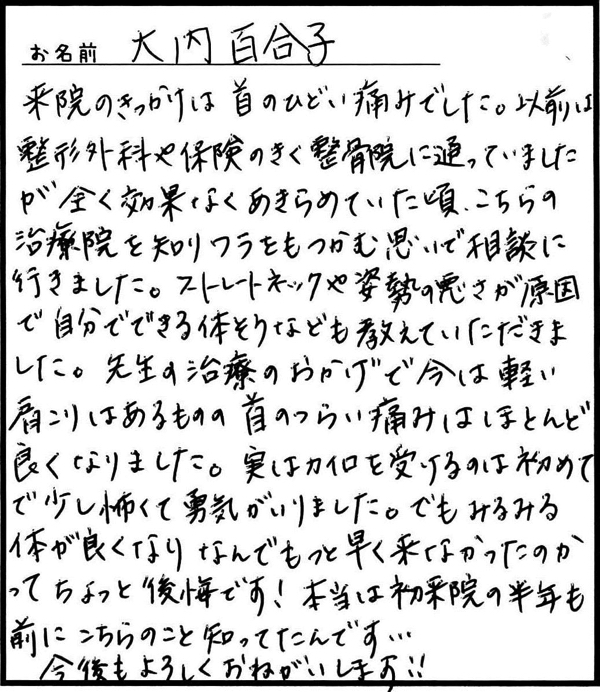 お名前 大内百合子
来院のきっかけは首のひどい痛みでした。以前は
整形外科や保険のきく整骨院に通っていました
が全く効果なくあきらめていた頃、こちらの
治療院を知りワラをもつかむ思いで相談に
行きました。ストレートネックや姿勢の悪さが原因
で自分でできる体そうなども教えていただきま
した。先生の治療のおかげで今は軽い
肩こりはあるものの首のつらい痛みはほとんど
良くなりました。実はカイロを受けるのは初めて
で少し怖くて勇気がいりました。でもみるみる
体が良くなりなんでもっと早く来なかったのか
ってちょっと後悔です!本当は初来院の半年も
前にこちらのこと知ってたんです…
今後もよろしくおねがいします!!